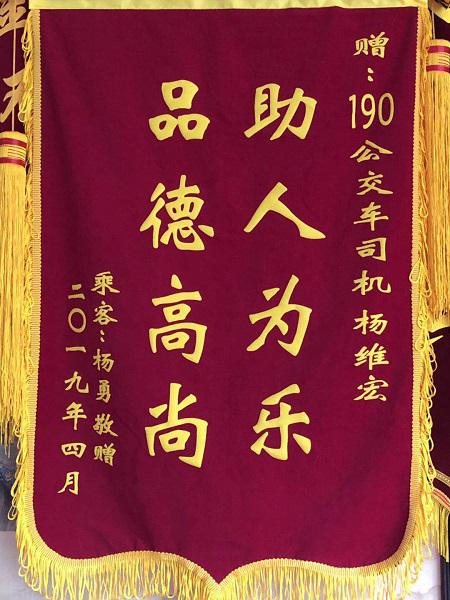 赠：190公交车司机杨维宏
助人为乐
品德高尚
乘客：杨勇敬赠
二〇一九年四月